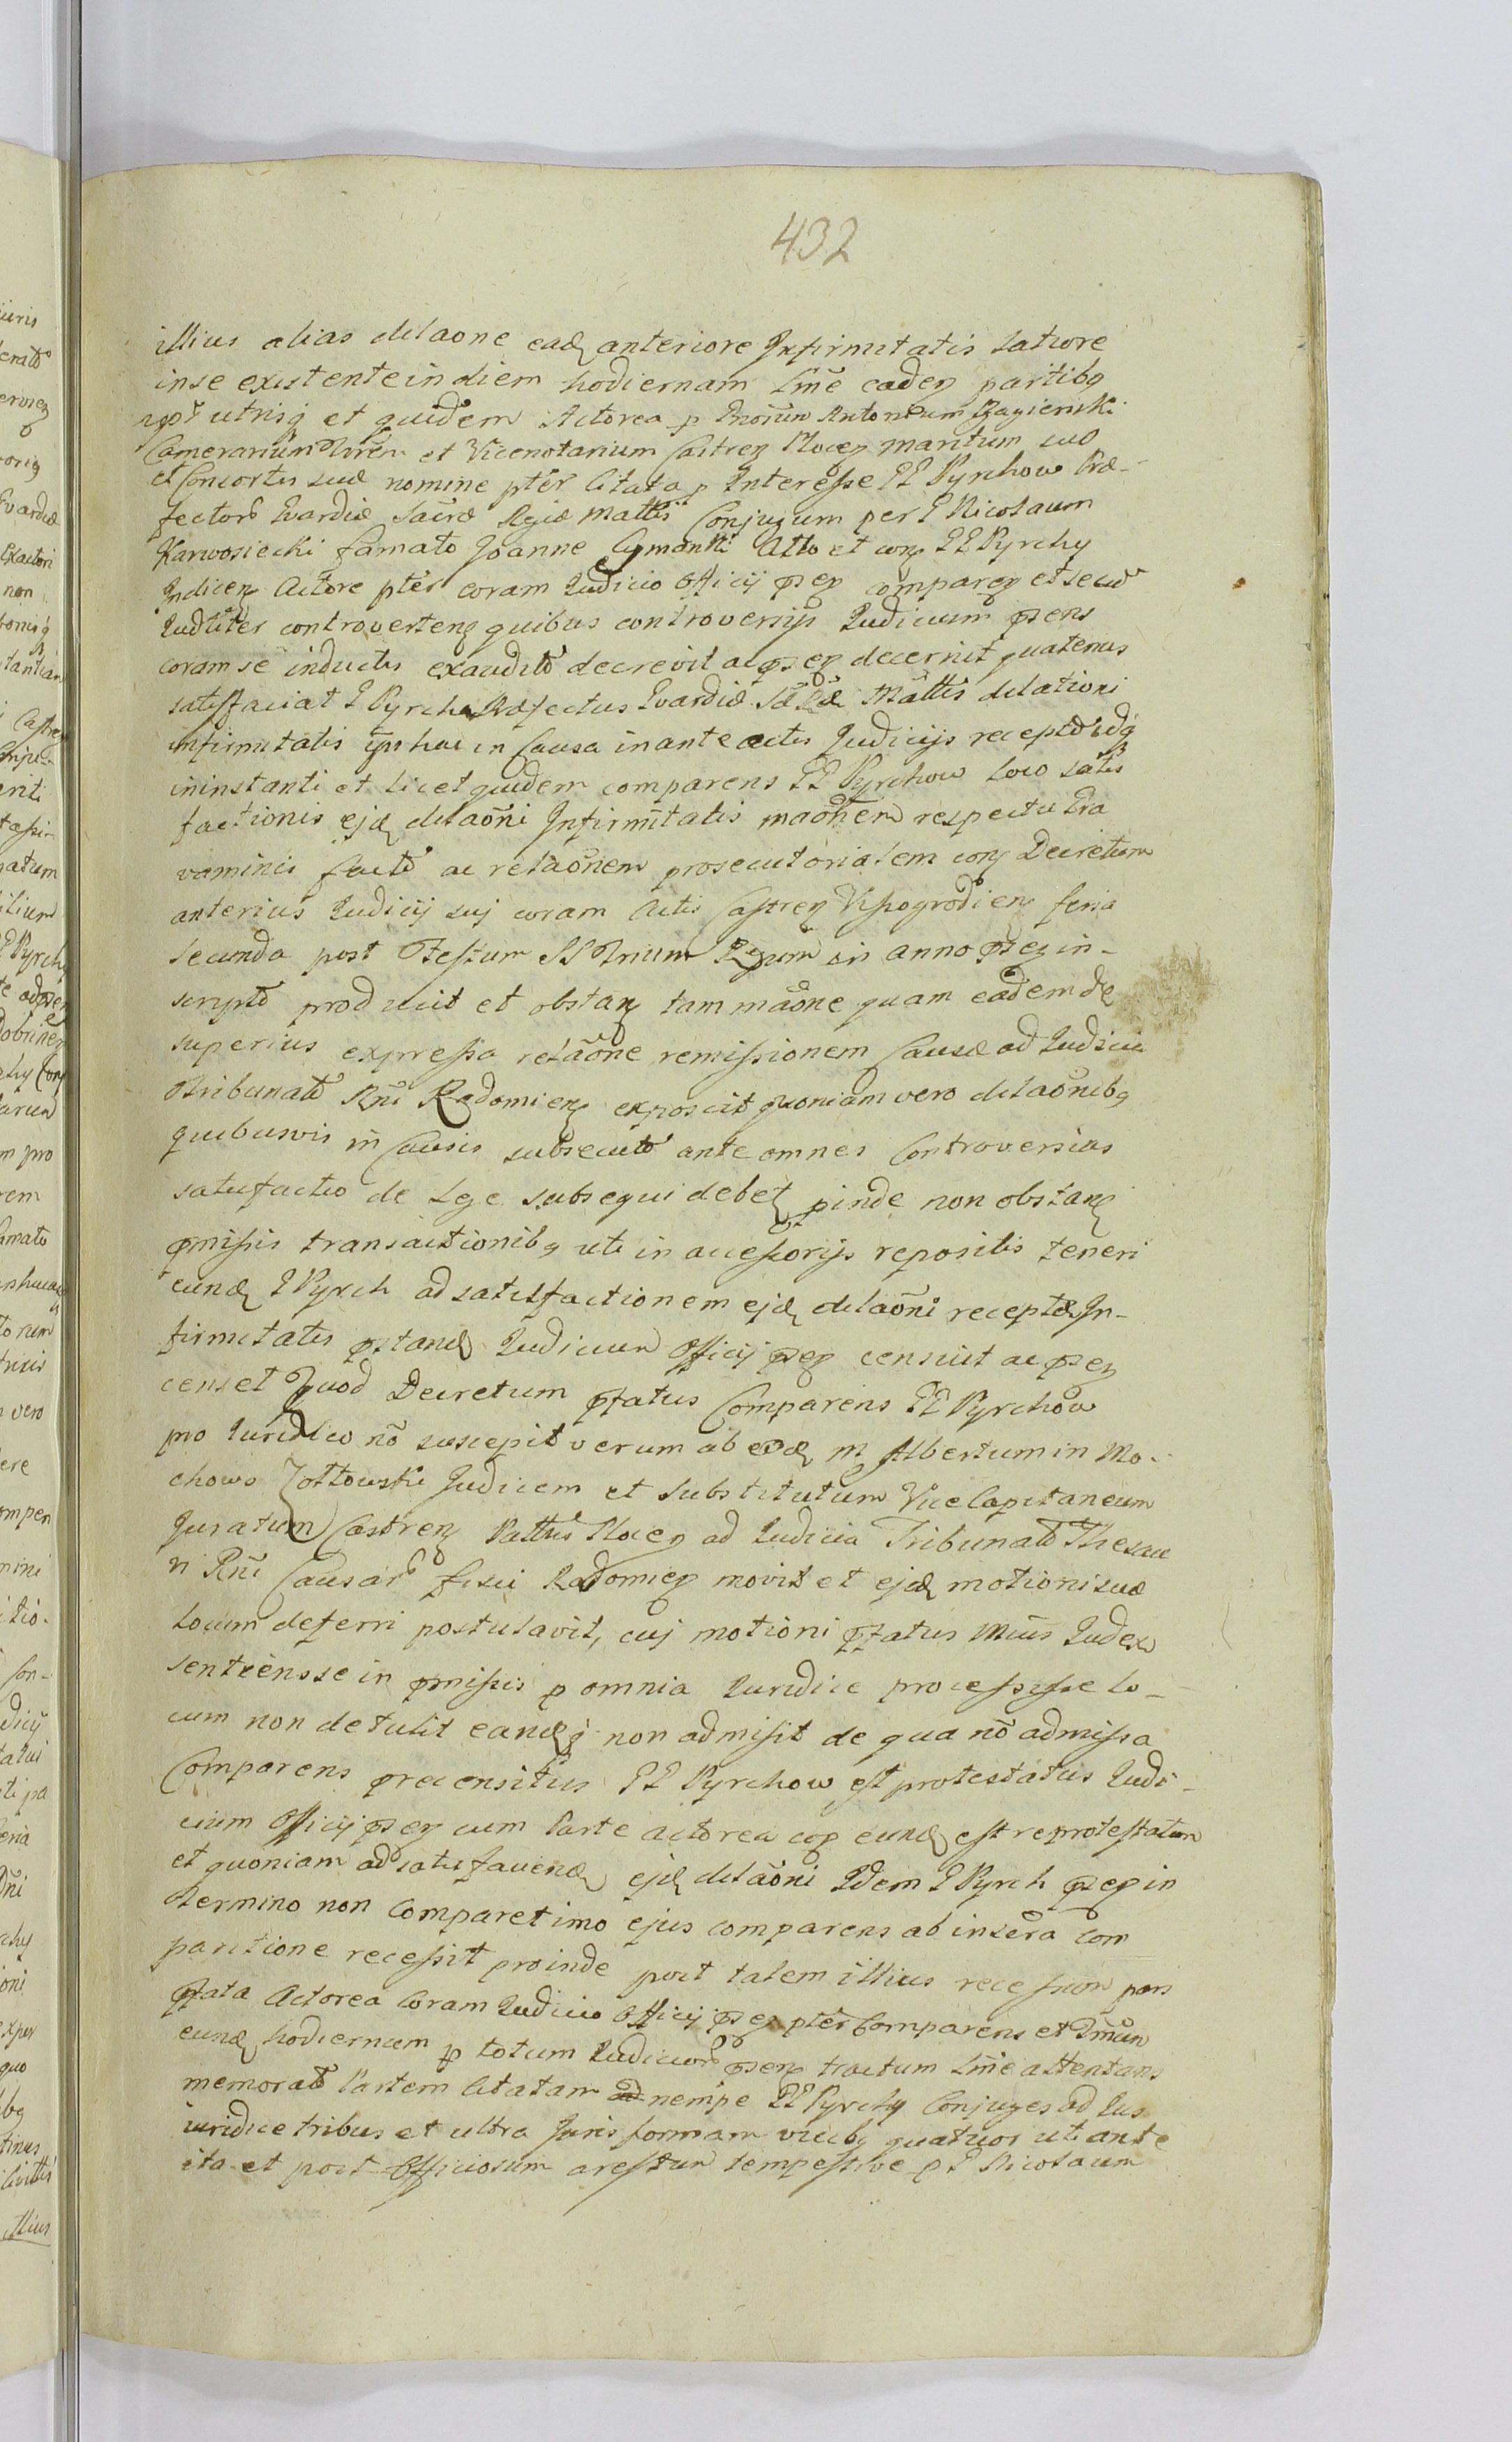 432
illius alias dilaone ead anteriore Infirmitatis latiore
in se existente in diem hodiernam lime eadem partibq
utrisq et quidem Actorea p Gnosum Antonium Zagierski
Camerarium et Vicenotarium Castren Plocen maritum suo
et Consortis suæ nomine pter Citata p Interesse PP Pyrchow Præ-
fector Gvardiæ Sacræ Rgiæ Mattis Conjugum per P Nicolaum
Karwosiecki famato Joanne Cymanski Atto et con PP Pyrchy
Indicen Actore pter coram Judicio Officij psen comparen et secu
Judliter controverten quibus controversijs Judicium psens
coram se inductis exaudito decrevit ac psen decernit quatenus
satisfaciat P Pyrch Præfectus Gvardiæ Sæ Ræ Mattis dilationi
infirmitatis ipsi hac in Causa in anteactis Judicijs receptæ idq
in instanti et licet quidem comparens PP Pyrchow loco satis
factionis ejd dilaoni Infirmitatis maonem respectu Gra
vaminis facti ac relaonem prosecutorialem con Decretum
anterius Judicij suj coram Actis Castren Vissogrodien feria
secunda post Festum SS Trium Regum in anno psen in-
script produxit et obstan tam maone quam eadem de
superius expressa relaone remissionem Causæ ad Judicia
Tribunals Rni Radomien exposcit quoniam vero dilaonibq
quibusvis in Causis subsecut ante omnes Controversias
satisfactio de Lge subsequi debet pinde non obstan
pmissis transactionibq uti in accessorijs repositis teneri
eund P Pyrch ad satisfactionem ejd dilaoni receptæ In-
firmitatis pstand Judicium Officij psen censuit ac psen
censet Quod Decretum pfatus Comparens PP Pyrchow
pro Juridico no suscepit verum ab eod m Albertum in Mo-
chowo Zołtowski Judicem et Substitutum ViceCapitaneum
Juratum Castren Pattus Plocen ad Judicia Tribunals Thesau
ri Rni Causar fisci Radomien movit et ejd motioni suæ
locum deferri postulavit, cuj motioni pfatus Mius Judex
sentiens se in pmissis p omnia Juridice processisse lo-
cum non detulit eandq non admisit de qua no admissa
Comparens precensitus PP Pyrchow est protestatus Judi-
cium Officij psen cum Parte Actorea con eund est reprotestatum
et quoniam ad satisfaciend ejd dilaoni Idem P Pyrch psen in
termino non Comparet imo ejus comparens ab insera com
paritione recessit proinde post talem illius recessum pars
pfata Actorea Coram Judicio Officij psen pter Comparens et Tmum
eund hodiernum p totum Judicior psen tractum lime attentans
memorat Partem Citatam nempe PP Pyrchy Conjuges ad Jus
iuridice tribus et ultra Juris formam vicibq quatuor uti ante
ita et post Officiosum arestum tempestive p P Nicolaum